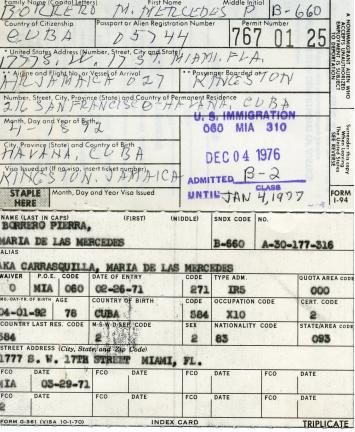 Family Name (Capital Letters) First Name Middle Initial
M. MERCEDES P. B-660
Country of Citizenship Passport or Alien Registration Number Permit Number
CUBA D5744 767 01 25
* United States Address (Number, Street, City and State)
1777 S.W. 17 ST MIAMI. FLA.
Airline and Flight No. or Vessel of Arrival ** Passenger Boarded at
AIR JAMAICA 027 KINGSTON
Number, Street, City (Province) and Country of Permanent Residence
216 SAN FRANCISCO HAVANA, CUBA
Month, Day and Year of Birth
City, Province (State) and Country of Birth
HAVANA CUBA
Visa Issued at (If no visa, insert ticket number)
KINGSTON, JAMAICA
Month, Day and Year Visa Issued
STAPLE HERE
U. S. IMMIGRATION
060 MIA 310
DEC 04 1976
ADMITTED B-2
CLASS
UNTIL JAN 4, 1977
A NONIMMIGRANT ALIEN WHO
FORM I-94
NAME (LAST IN CAPS) (FIRST) (MIDDLE) SNDX CODE NO.
BORRERO PIERRA,
MARIA DE LAS MERCEDES B-660 A-30-177-316
ALIAS
AKA CARRASQUILLA, MARIA DE LAS MERCEDES
WAIVER P.O.E. CODE DATE OF ENTRY CODE TYPE ADM. QUOTA AREA CODE
0 MIA 060 02-26-71 271 IR5 000
MO.-DAY-YR. OF BIRTH AGE COUNTRY OF BIRTH CODE OCCUPATION CODE CERT. CODE
04-01-92 78 CUBA 584 X10 2
COUNTRY LAST RES. CODE M-S-W-D-SEP. CODE SEX NATIONALITY CODE STATE/AREA CODE
584 2 2 83 093
STREET ADDRESS (City, State, and Zip Code)
1777 S. W. 17TH STREET MIAMI, FL.
FCO DATE FCO DATE FCO DATE FCO DATE
MIA 03-29-71
FCO DATE FCO DATE FCO DATE FCO DATE
2
FORM G-361 (VISA 10-1-70) INDEX CARD TRIPLICATE